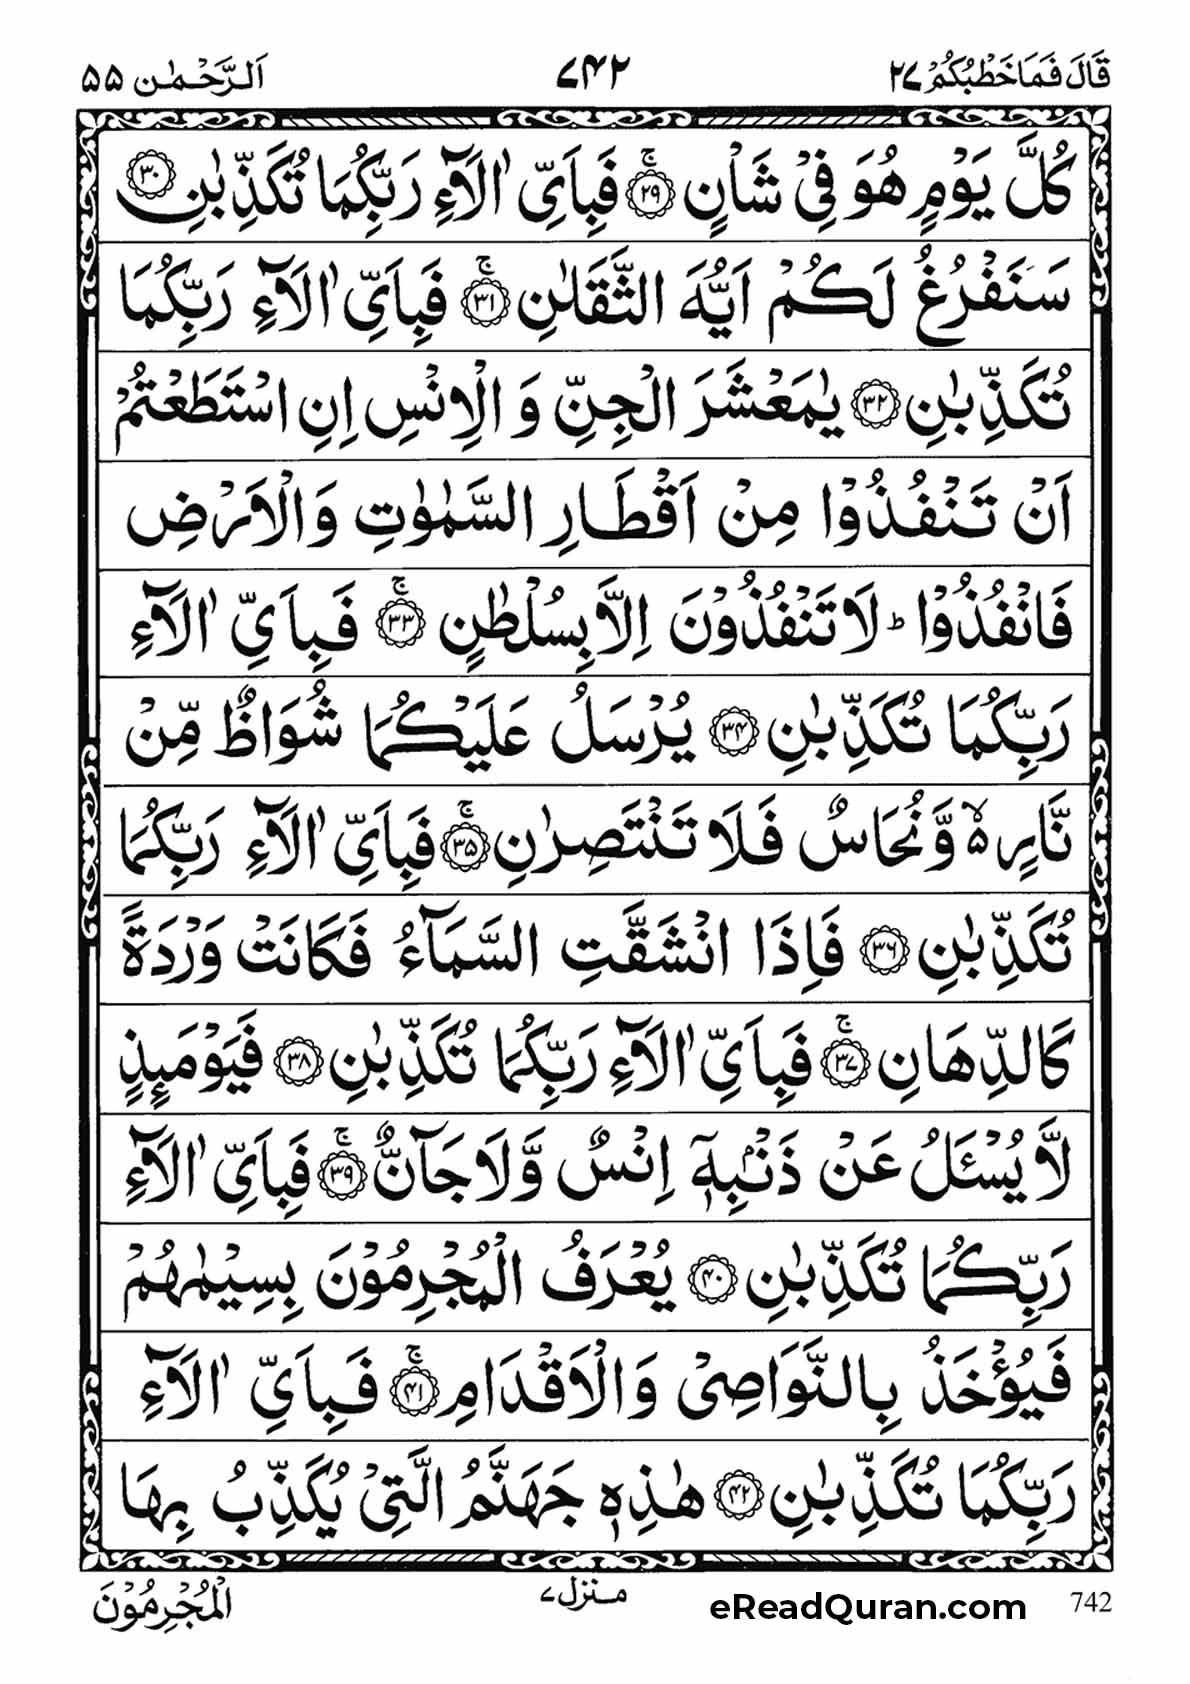 قَالَ فَمَا خَطْبُكُمْ ٢٧ ٧٤٢ اَلرَّحْمٰن ٥٥
كُلَّ يَوْمٍ هُوَ فِيْ شَاْنٍ ۚ‏﴿۲۹﴾ فَبِاَيِّ اٰلَآءِ رَبِّكُمَا تُكَذِّبٰنِ ﴿۳۰﴾
سَنَفْرُغُ لَكُمْ اَيُّهَ الثَّقَلٰنِ ۚ‏﴿۳۱﴾ فَبِاَيِّ اٰلَآءِ رَبِّكُمَا
تُكَذِّبٰنِ ﴿۳۲﴾ يٰمَعْشَرَ الْجِنِّ وَ الْاِنْسِ اِنِ اسْتَطَعْتُمْ
اَنْ تَنْفُذُوْا مِنْ اَقْطَارِ السَّمٰوٰتِ وَالْاَرْضِ
فَانْفُذُوْا ؕ لَا تَنْفُذُوْنَ اِلَّا بِسُلْطٰنٍ ۚ‏﴿۳۳﴾ فَبِاَيِّ اٰلَآءِ
رَبِّكُمَا تُكَذِّبٰنِ ﴿۳۴﴾ يُرْسَلُ عَلَيْكُمَا شُوَاظٌ مِّنْ
نَّارٍ ۙ۬ وَّنُحَاسٌ فَلَا تَنْتَصِرٰنِ ۚ‏﴿۳۵﴾ فَبِاَيِّ اٰلَآءِ رَبِّكُمَا
تُكَذِّبٰنِ ﴿۳۶﴾ فَاِذَا انْشَقَّتِ السَّمَآءُ فَكَانَتْ وَرْدَةً
كَالدِّهَانِ ۚ‏﴿۳۷﴾ فَبِاَيِّ اٰلَآءِ رَبِّكُمَا تُكَذِّبٰنِ ﴿۳۸﴾ فَيَوْمَئِذٍ
لَّا يُسْـَٔلُ عَنْ ذَنْۢبِهٖٓ اِنْسٌ وَّلَا جَآنٌّ ۚ‏﴿۳۹﴾ فَبِاَيِّ اٰلَآءِ
رَبِّكُمَا تُكَذِّبٰنِ ﴿۴۰﴾ يُعْرَفُ الْمُجْرِمُوْنَ بِسِيْمٰهُمْ
فَيُؤْخَذُ بِالنَّوَاصِيْ وَالْاَقْدَامِ ۚ‏﴿۴۱﴾ فَبِاَيِّ اٰلَآءِ
رَبِّكُمَا تُكَذِّبٰنِ ﴿۴۲﴾ هٰذِهٖ جَهَنَّمُ الَّتِيْ يُكَذِّبُ بِهَا
الْمُجْرِمُوْنَ
منزل ٧
eReadQuran.com
742